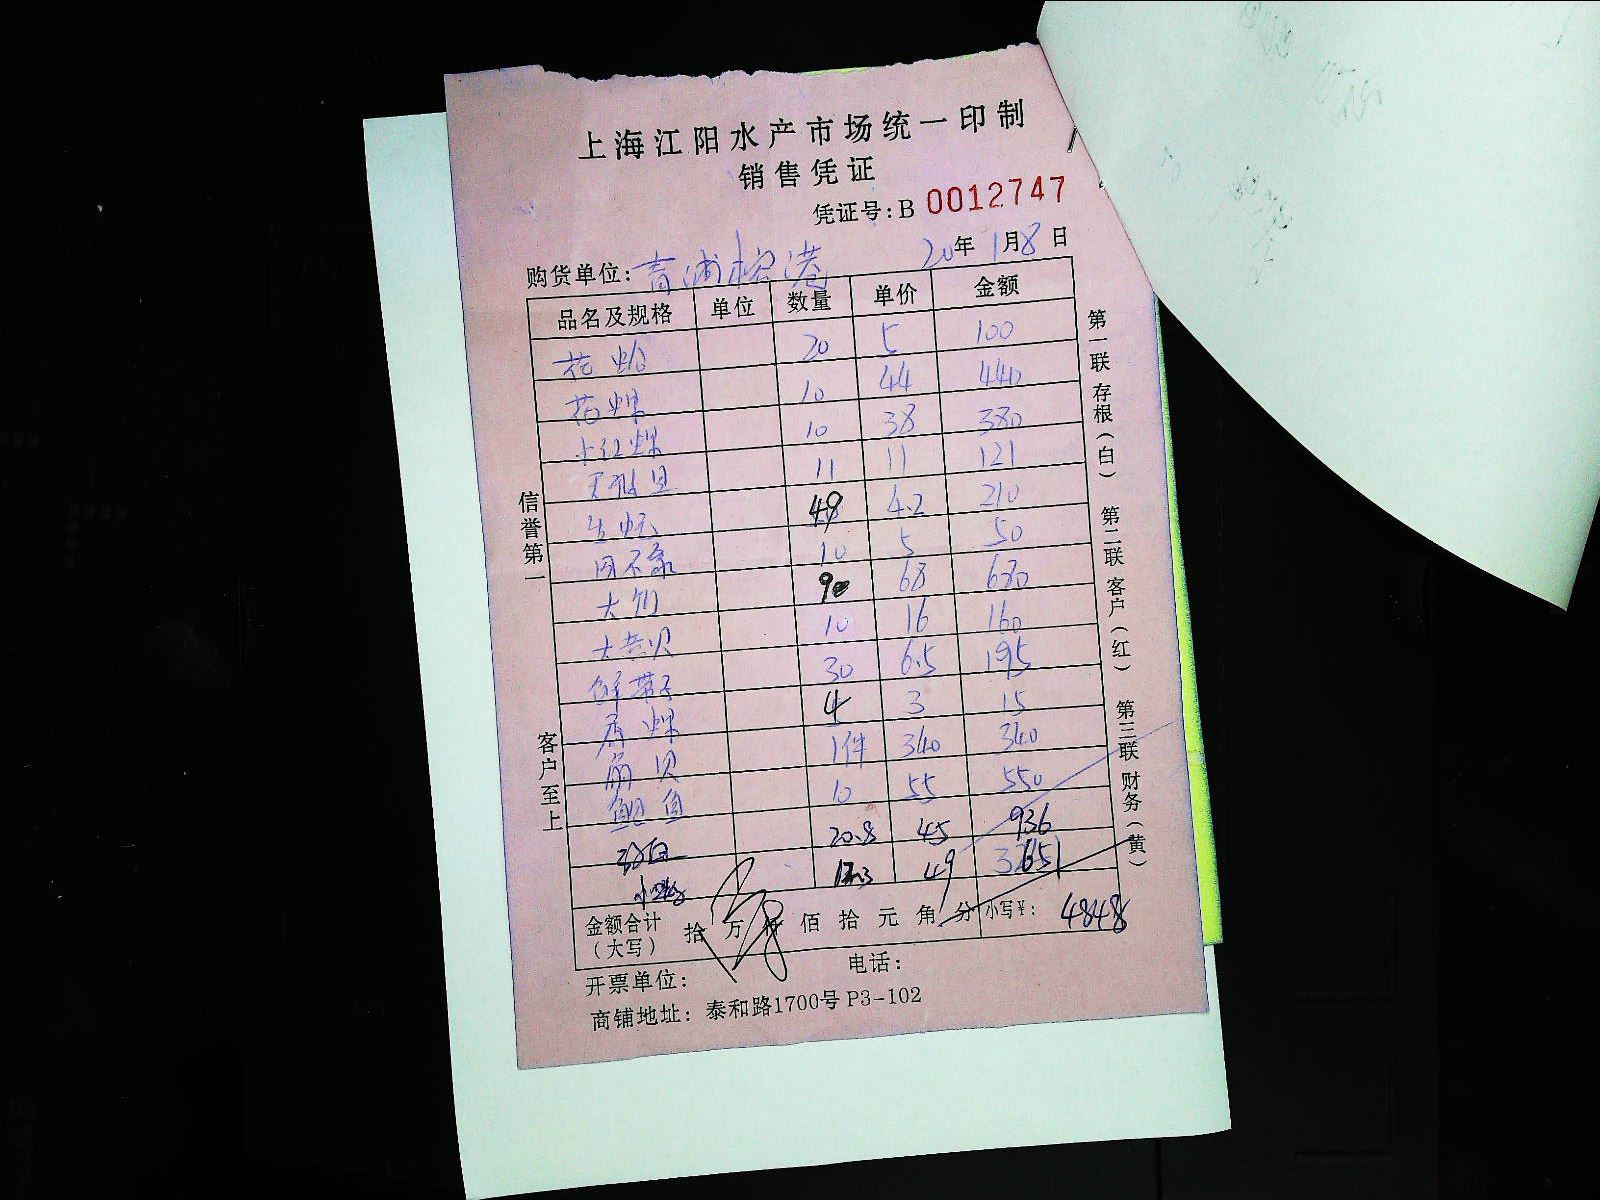 上海江阳水产市场统一印制
销售凭证
凭证号:B 0012747
购货单位:青浦榕港 20年1月8日
品名及规格 单位 数量 单价 金额
花蛤 20 5 100
花螺 10 44 440
小红螺 10 38 380
11 11 121
生蚝 49 4.2 210
10 5 50
大 90 68 680
大 贝 10 16 160
鲜带子 30 6.5 195
香螺 4 3 15
贝 1件 340 340
鲍鱼 10 55 550
20.8 45 936
小 13.3 49 651
金额合计(大写) 拾 万 仟 佰 拾 元 角 分 小写¥: 4848
开票单位: 电话:
商铺地址: 泰和路1700号 P3-102
信誉第一 客户至上
第一联 存根(白) 第二联 客户(红) 第三联 财务(黄)